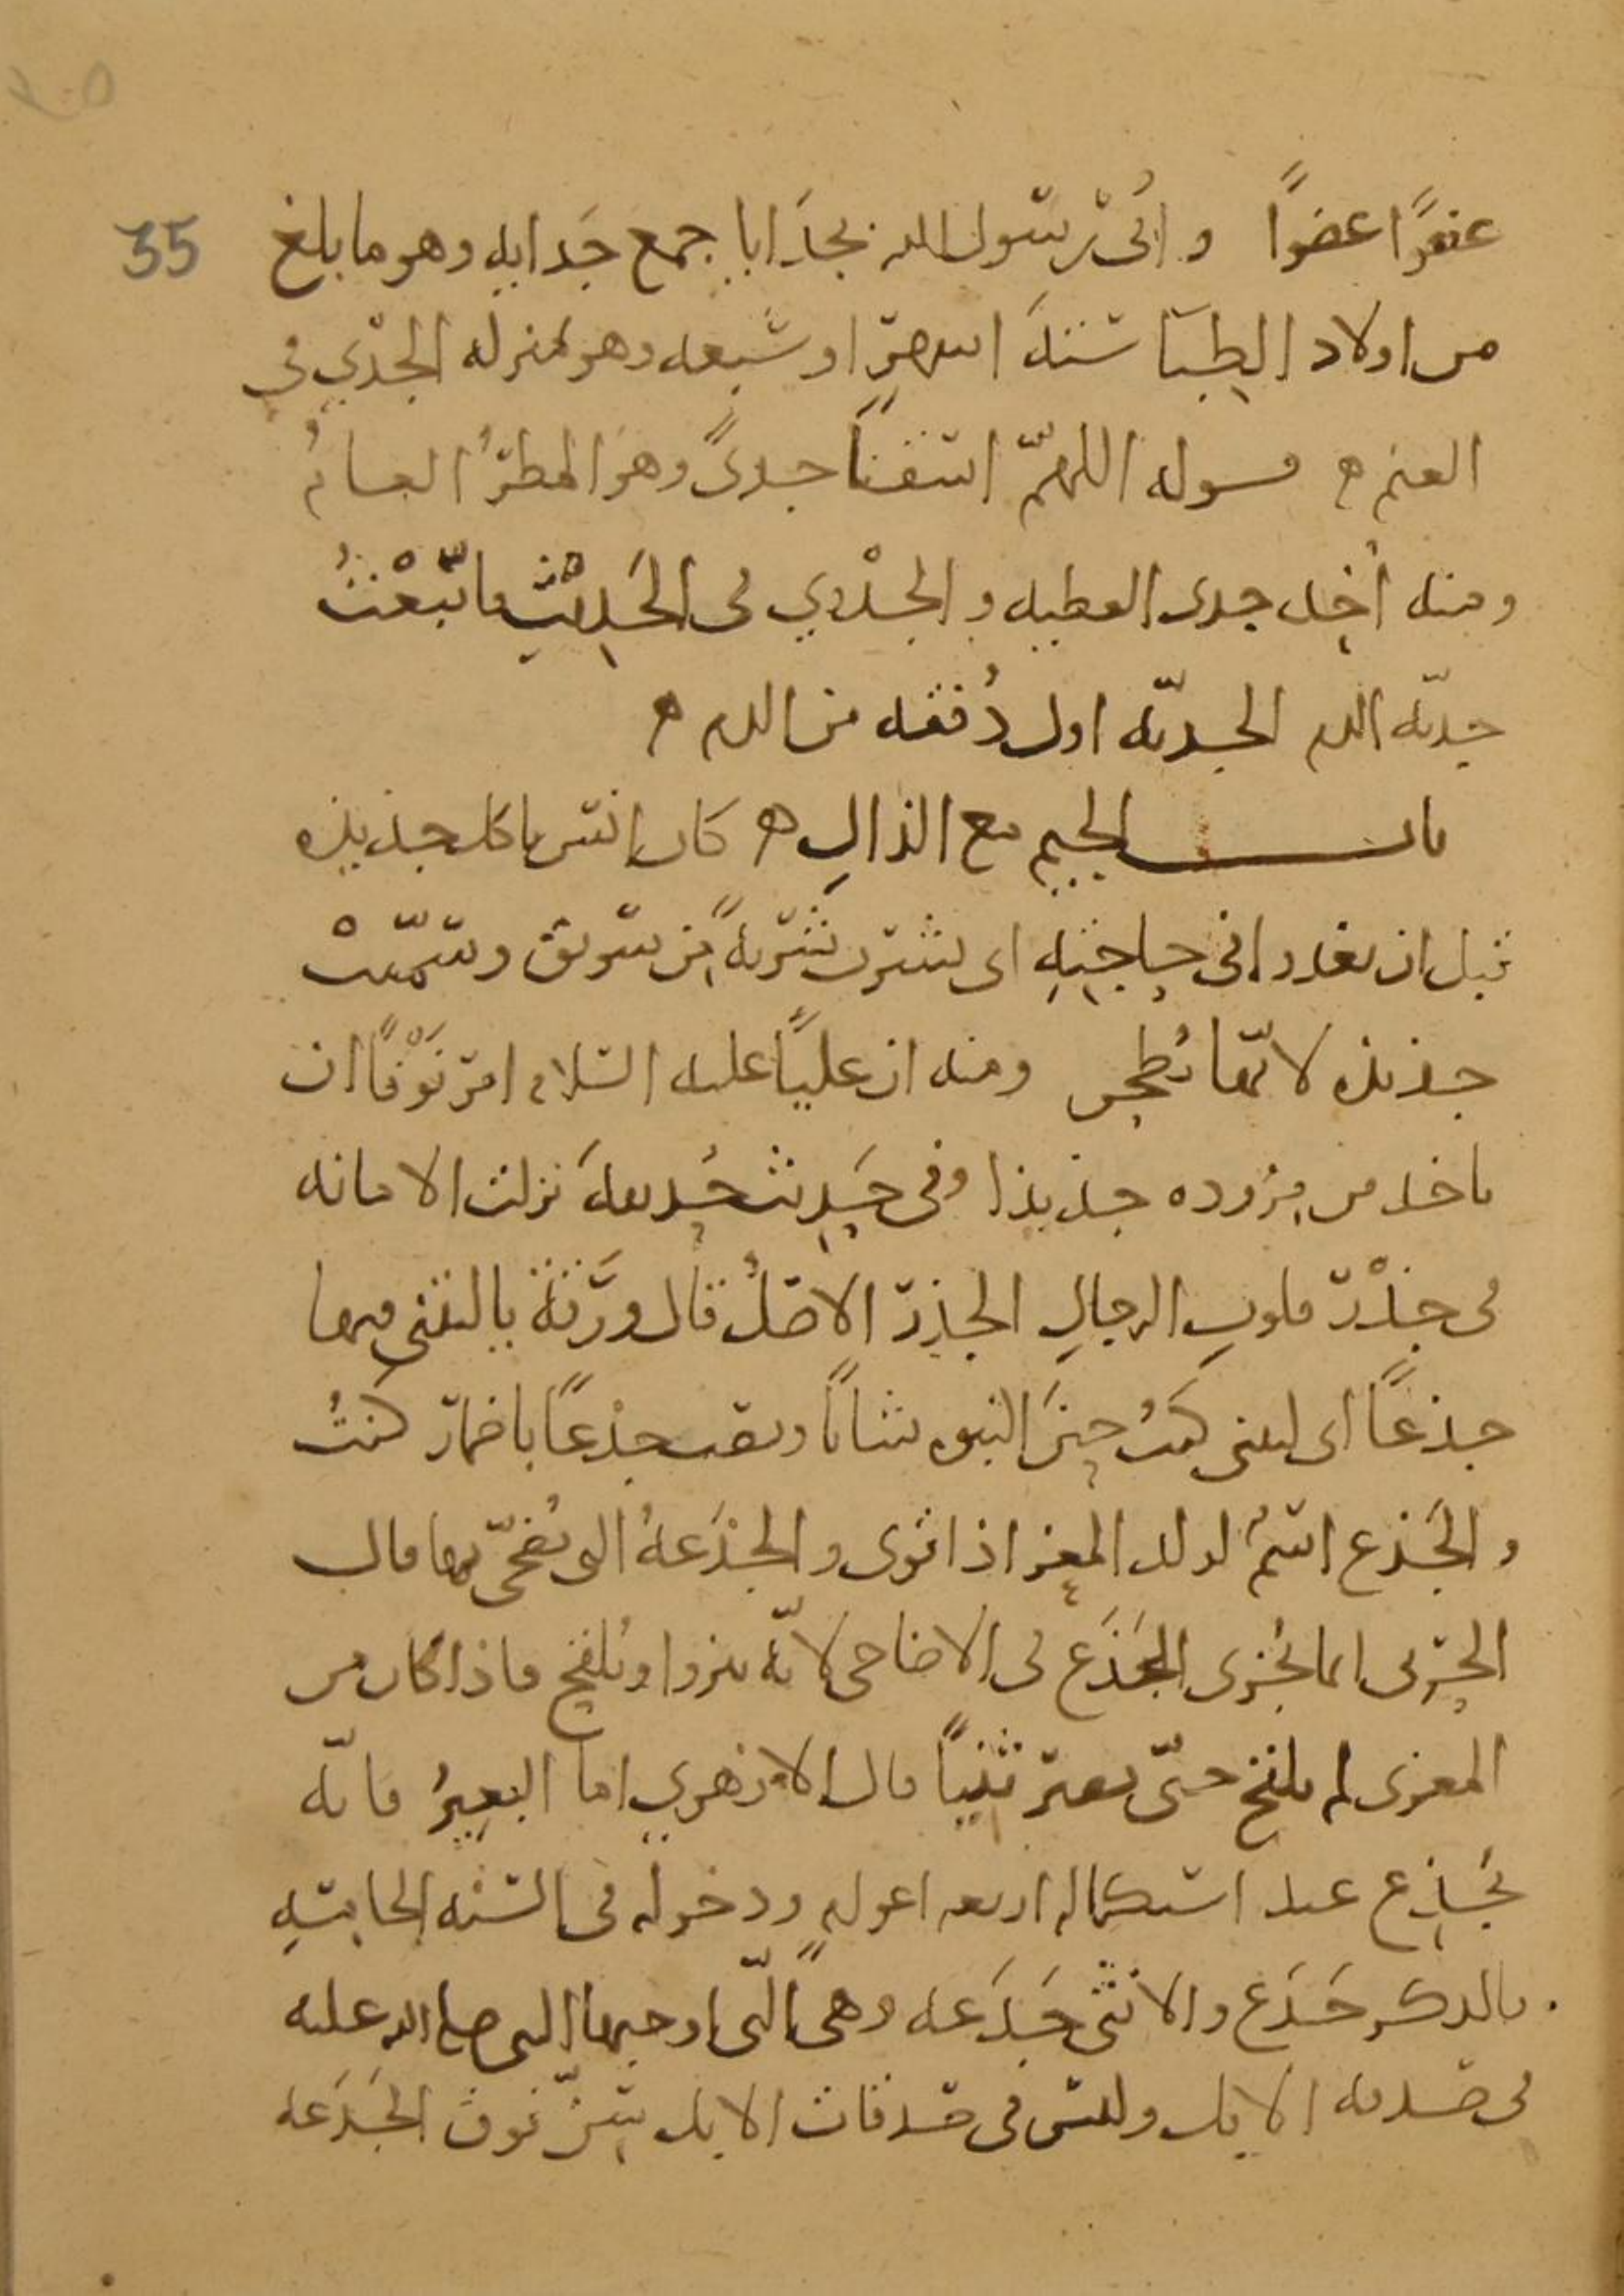 35
عضوًا عضوًا و أُتى رسول الله بجدَايا جمع جَدايه وهو ما بلغ
من اولاد الظِبآ ستة اشهرٍ او سبعه وهو بمنزله الجَدْي فى
الغنم ه قوله اللهمّ اسقنا جدىً وهو المطرُ العامُ
ومنه أُخِذ جدى العطيه و الجَدْوي فى الحَدِيْثِ ما تّبعْتُ
جديّه الدم الجديّه اول دُفعه من الدم ه
باب الجيم مع الذالِ ه كان انس ياكل جذيذه
قبل ان يغدو افى حاجتِهِ اى يشرب شَربةً من سويق وسمّيتْ
جذيذه لانّها تُطحن ومنه ان عليًا عليه السلام امر نَوْفًا ان
ياخذ من مِزْوده جذيذا وفى حَدِيث حُذيفهَ نزلت الامانه
فى جذْرِ قلوبِ الرجالِ الجذرُ الاصلُ قال ورَقَةُ يا ليتنى فيها
جذعًا اى ليتنى كنتُ حِينَ النبوه شابًا ونصب جذعًا باضمار كنتُ
و الجَذع اسمٌ لولد المعِز اذا قوى و الجَذَعهُ التى يُضحّى بها قال
الحَرْبى انما يُجزى الجَذَع فى الاضاحى لانّه ينزوا ويُلقح فاذا كان من
المعزى لم يلقح حتّى يصيرَ ثنيًا قال الازهري اما البعِيرُ فانّه
يُجذِع عند استكماله اربعه اعوامٍ ودخوله فى السنه الخامسِه
فالذكر جَذَع والانثى جَذَعه وهى الّتى اوجبها النبى صلى الله عليه
فى صدقه الابل وليس فى صدقات الابل سِنٌ فوق الجَذَعه